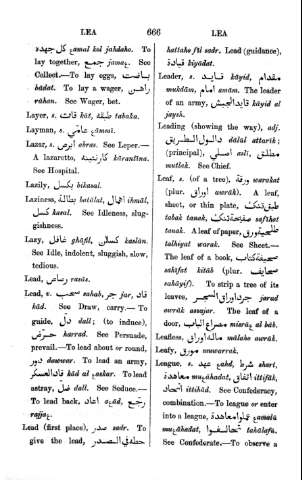 LEA 666 LEA
كل جهده aamal kol jahdoho. To
lay together, جمع jamaa. See
Collect.—To lay eggs, باضت
bádat. To lay a wager, راهن
ráhan. See Wager, bet.
Layer, s. طبقة tabaka.
Layman, s. عامي
Lazar, s. ابرص abras. See Leper.—
A lazaretto, كارنتينه kárantina.
See Hospital.
Lazily, بكسل bikasal.
Laziness, بطالة batálaṭ, اهمال ihmál,
كسل kasal. See Idleness, slug-
gishness.
Lazy, غافل gháfil, كسلان kaslán.
See Idle, indolent, sluggish, slow,
tedious.
Lead, رصاص rasás.
Lead, v. سحب sahab, جر jar, قاد
kád. See Draw, carry.—To
guide, دل dall; (to induce),
حرض harrad. See Persuade,
prevail.—To lead about or round,
دور dauwar. To lead an army,
قاد العسكر kád al askar. To lead
astray, ضل dall. See Seduce.—
To lead back, اعاد aaád, رجع
rajjaa.
Lead (first place), صدر sadr. To
give the lead, حطه في الصدر
hattaho fti sadr. Lead (guidance),
قيادة kiyádat.
Leader, s. قايد káyid, مقدام
mukdám, امام amám. The leader
of an army, قايد الجيش káyid al
jaysh.
Leading (showing the way), adj.
دالول الطريق dálúl attarik;
(principal), اصلي asli, مطلق
mutlak. See Chief.
Leaf, s. (of a tree), ورقة warakat
(plur. اوراق awrák). A leaf,
sheet, or thin plate,
tabak tanak, صفحة تنك safhat
tanak. A leaf of paper,
talhiyat warak. See Sheet.—
The leaf of a book, صحيفة كتاب
sahífat kitáb (plur. صحايف
saháyif). To strip a tree of its
leaves, جرد اوراق الشجر jarad
awrák assajar. The leaf of a
door, مصراع الباب misráa al báb.
Leafless, ماله اوراق málaho awrák.
Leafy, مورق muwarrak.
League, s. عهد aahd, شرط shart,
معاهدة muaáhadat, اتفاق ittifák,
اتحاد ittihád. See Confederacy,
combination.—To league or enter
into a league, عملوا معاهدة aamalú
muaáhadat, تحالفوا tahálafú.
See Confederate.—To observe a